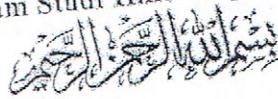 am Studi Ilm
بسم الله الرحمن الرحيم